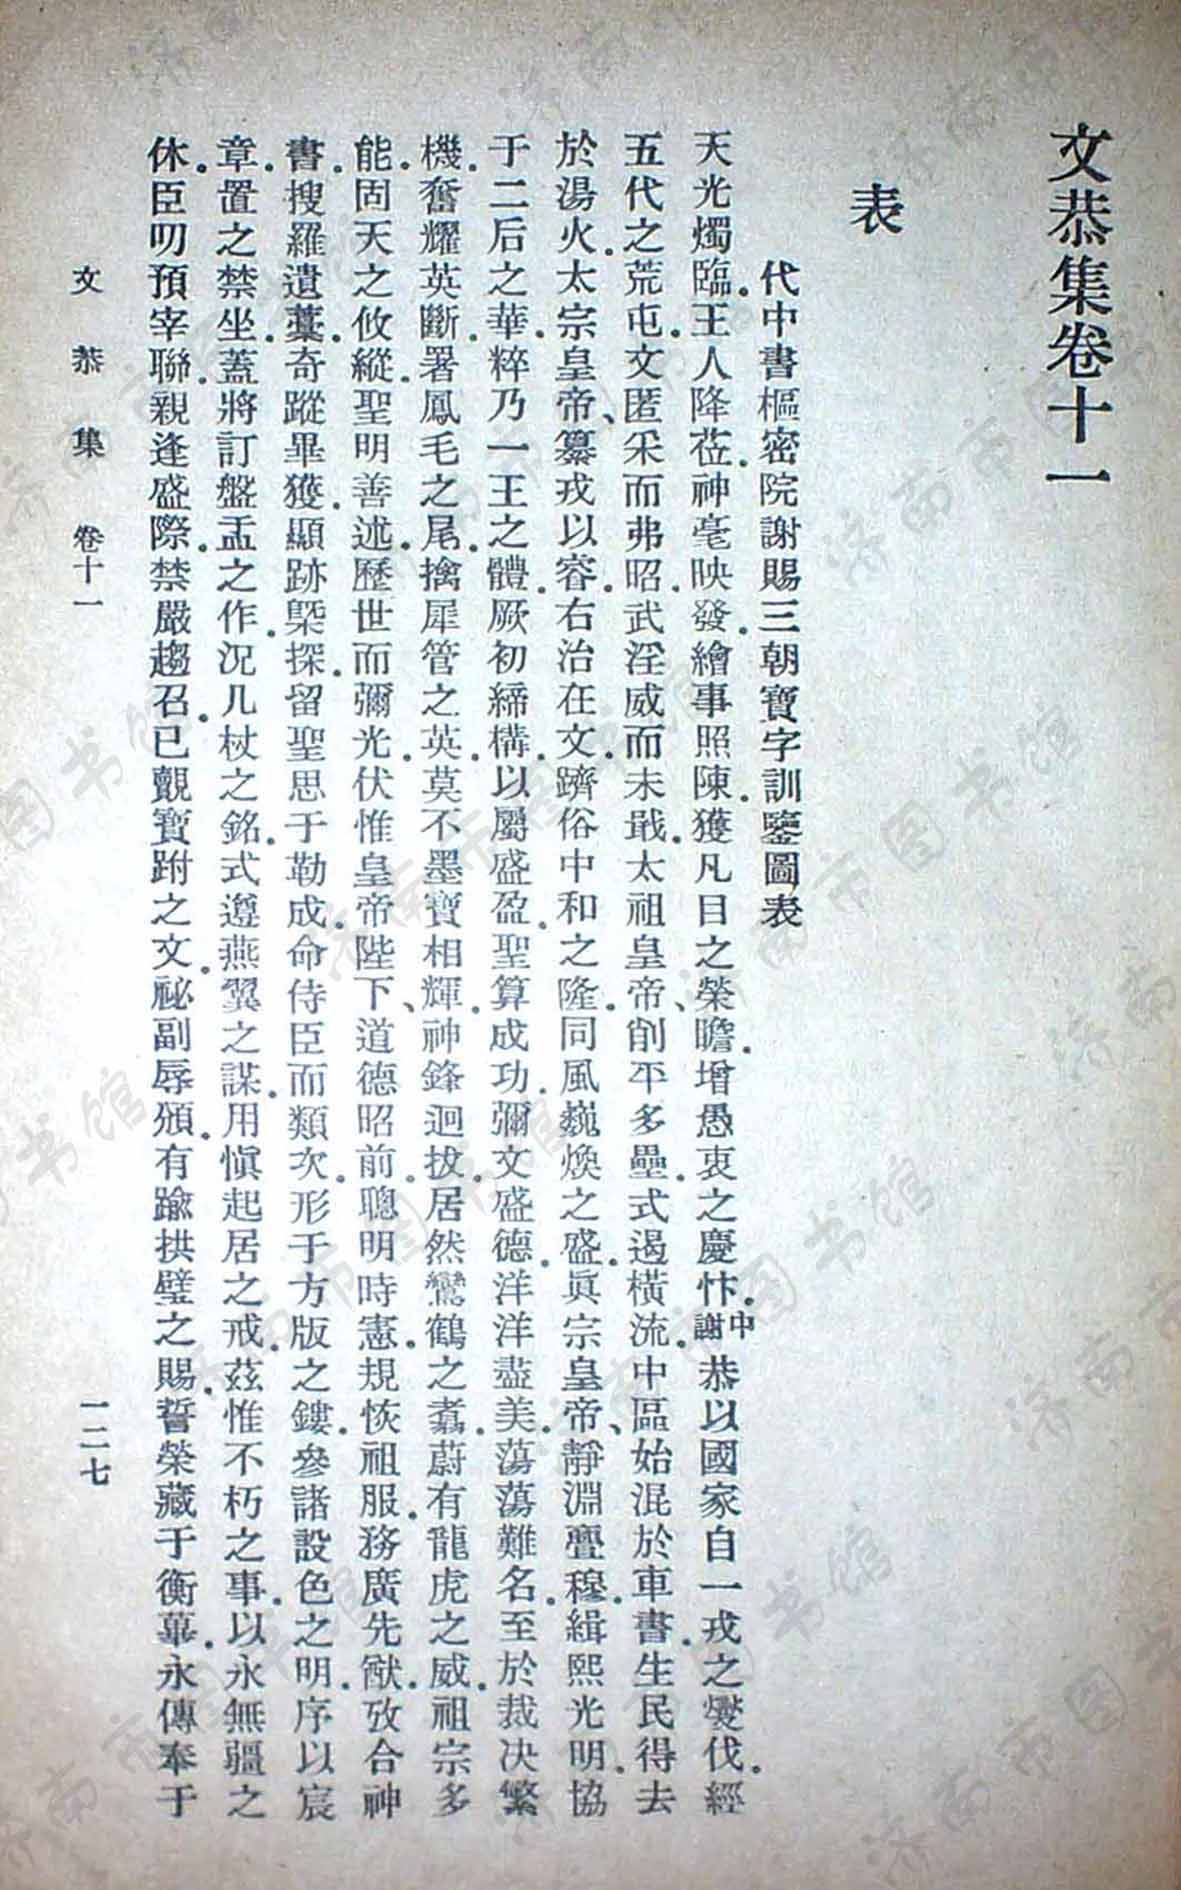 文恭集卷十一
表
代中書樞密院謝賜三朝寶字訓鑒圖表
天光燭臨。王人降莅。神毫映發。繪事照陳。獲凡目之榮瞻。增愚衷之慶忭。中謝恭以國家自一戎之燮伐。經
五代之荒屯。文匿采而弗昭。武淫威而未戢。太祖皇帝、削平多壘。式遏橫流。中區始混於車書。生民得去
於湯火。太宗皇帝、纂戎以睿。右治在文。躋俗中和之隆。同風巍煥之盛。眞宗皇帝、靜淵亹穆。緝熙光明。協
于二后之華。粹乃一王之體。厥初締構。以屬盛盈。聖算成功。彌文盛德。洋洋盡美。蕩蕩難名。至於裁決繁
機。奮耀英斷。署鳳毛之尾。擒犀管之英。莫不墨寶相輝。神鋒迴拔。居然鸞鶴之翥。蔚有龍虎之威。祖宗多
能。固天之攸縱。聖明善述。歷世而彌光。伏惟皇帝陛下、道德昭前。聰明時憲。規恢祖服。務廣先猷。攷合神
書。搜羅遺藁。奇蹤畢獲。顯跡槩探。留聖思于勒成。命侍臣而類次。形于方版之鏤。參諸設色之明。序以宸
章。置之禁坐。蓋將訂盤盂之作。況几杖之銘。式遵燕翼之謀。用愼起居之戒。茲惟不朽之事。以永無疆之
休。臣叨預宰聯。親逢盛際。禁嚴趨召。已觀寶跗之文。祕副辱頒。有踰拱璧之賜。誓榮藏于衡蓽。永傳奉于
文恭集 卷十一
一二七
济南市图书馆